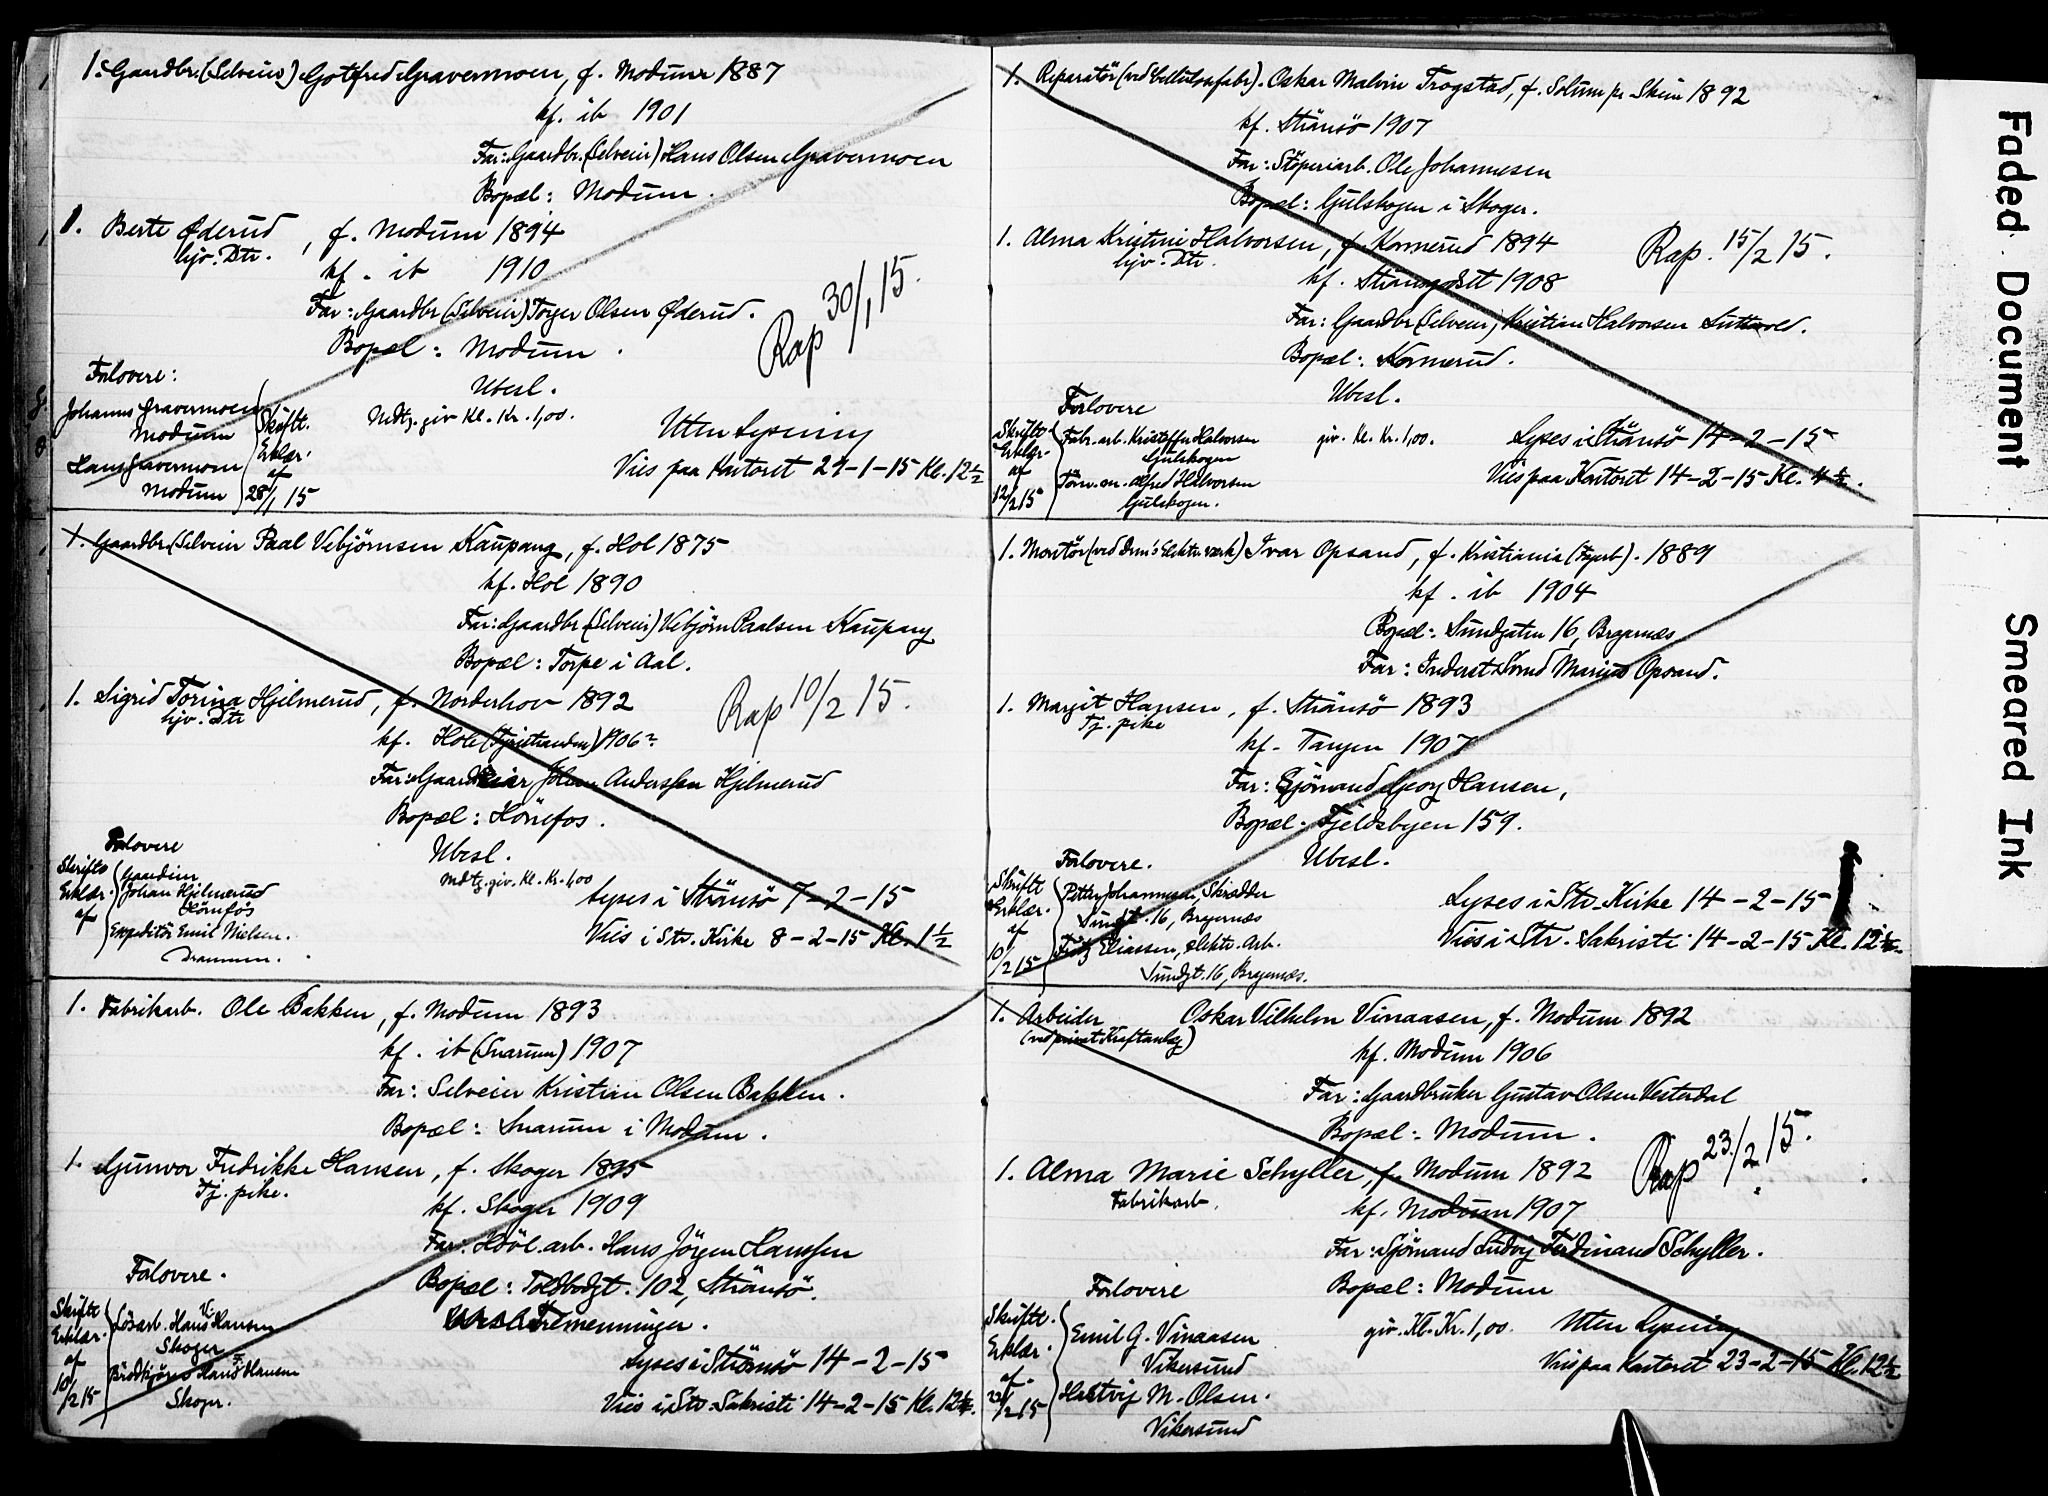 1. Gaardbr. (Selveier) Gotfred Gravermoen, f. Modum 1887
kf. ib 1901
Far: Gaardbr. (Selveier) Hans Olsen Gravermoen
Bopæl: Modum.
1. Berte Øderud, f. Modum 1894
hjv. Dtr.
kf. ib 1910
Far: Gaardbr (Selveier) Torger Olsen Øderud.
Bopæl: Modum.
Rap 30/1 15.
Forlovere:
Ubesl.
Johannes Gravermoen
Modum
Hans Gravermoen
Modum
Skriftl. Erklær. af 28/1 15
Mdtg. giv Kl. Kr. 1,00.
Uten Lysning
Vies paa Kontoret 29-1-15 Kl. 12 1/2
1. Gaardbr. (Selveier Paal Vebjörnsen Kaupang, f. Hol 1875
kf. Hol 1890
Far: Gaardbr (Selveier) Vebjörn Paalsen Kaupang
Bopæl: Torpe i Aal.
1. Sigrid Torina Hjelmerud, f. Norderhov 1892
hjv. Dtr
Rap 10/2 15.
kf. Hole (Tyristranden) 1906?
Far: Gaardeier Johan Anderssen Hjelmerud
Bopæl: Hönefos.
Forlovere
Ubesl.
Skriftl Erklær. af
Gaardeier
Johan Hjelmerud
Hönefos
Expeditör Emil Nielsen.
Drammen.
Mdtg. giv. Kl. Kr. 1,00
Lyses i Strömsö 7-2-15
Vies i Str. Kirke 8-2-15 Kl. 1 1/2
1. Fabrikarb. Ole Bakken, f. Modum 1893
kf. ib (Snarum) 1907
Far: Selveier Kristian Olsen Bakken.
Bopæl: Snarum i Modum.
1. Gunvor Fredrikke Hansen, f. Skoger 1895
Tj. pike.
kf. Skoger 1909
Far: Hövl. arb. Hans Jörgen Hanssen
Bopæl: Toldbodgt. 102, Strömsö.
Forlovere.
Tremenninger.
Skriftl Erklær. af 10/2 15
Lösarb. Hans Hansen
Skoger
Brödkjører Hans Hansen
Skoger.
Lyses i Strömsö 14-2-15
Vies i Str. Sakristi 14-2-15 Kl. 12
1. Reparatör (ved Cellulosefabr). Oskar Malvin Trogstad, f. Solum pr. Skien 1892
kf. Strömsö 1907
Far: Stöperiarb. Ole Johannesen
Bopæl: Gulskogen i Skoger.
1. Alma Kristine Halvorsen, f. Konnerud 1894
hjv. Dtr.
Rap. 15/2 15.
kf. Strömsgodset 1908
Far: Gaardbr (Selveier) Kristian Halvorsen
Bopæl: Konnerud.
Ubesl.
Forlovere
Skriftl Erklær. af 12/2 15
Fabr. arb. Kristoffer Halvorsen
Gulskogen
Töm. m. Alfred Halvorsen
Gulskogen.
giv. Kl. Kr. 1,00.
Lyses i Strömsö 14-2-15
Vies paa Kontoret 14-2-15 Kl.
1. Montör (ved Drm's Elektr. værk) Ivar Opsand, f. Kristiania (Fagerb). 1889
kf. ib 1904
Bopæl: Sundgaten 16, Bragernæs
Far: Inderst Svend Marius Opsand.
1. Margit Hansen, f. Strömsö 1893
Tj. pike
kf. Tangen 1907
Far: Sjömand Georg Hansen,
Bopæl: Fjeldsbyen 159.
Forlovere.
Ubesl.
Skriftl Erklær. af 10/2 15
Petter Johannesen, Skrædder
Sundgt. 16, Bragernæs
Fritz Eliassen, elektr. Arb.
Sundgt. 16, Bragernæs.
Lyses i Str. Kirke 14-2-15
Vies i Str. Sakristi 14-2-15 Kl. 12
1. Arbeider Oskar Vilhelm Vinaasen, f. Modum 1892
(ved privat Kraftanlæg)
kf. Modum 1906
Far: Gaardbruker Gustav Olsen Vesterdal
Bopæl: Modum.
Rap 23/2 15.
1. Alma Marie Schyller, f. Modum 1892
Fabrikarb.
kf. Modum 1907
Far: Sjömand Ludvig Ferdinand Schyller.
Forlovere
Bopæl: Modum
Skriftl. Erklær. af 23/2 15
Emil G. Vinaasen
Vikersund
M. Olsen.
Vikersund
giv. Kl. Kr. 1,00.
Uten Lysning
Vies paa Kontoret 23-2-15 Kl. 12 1/2
Faded Document
Smeared Ink